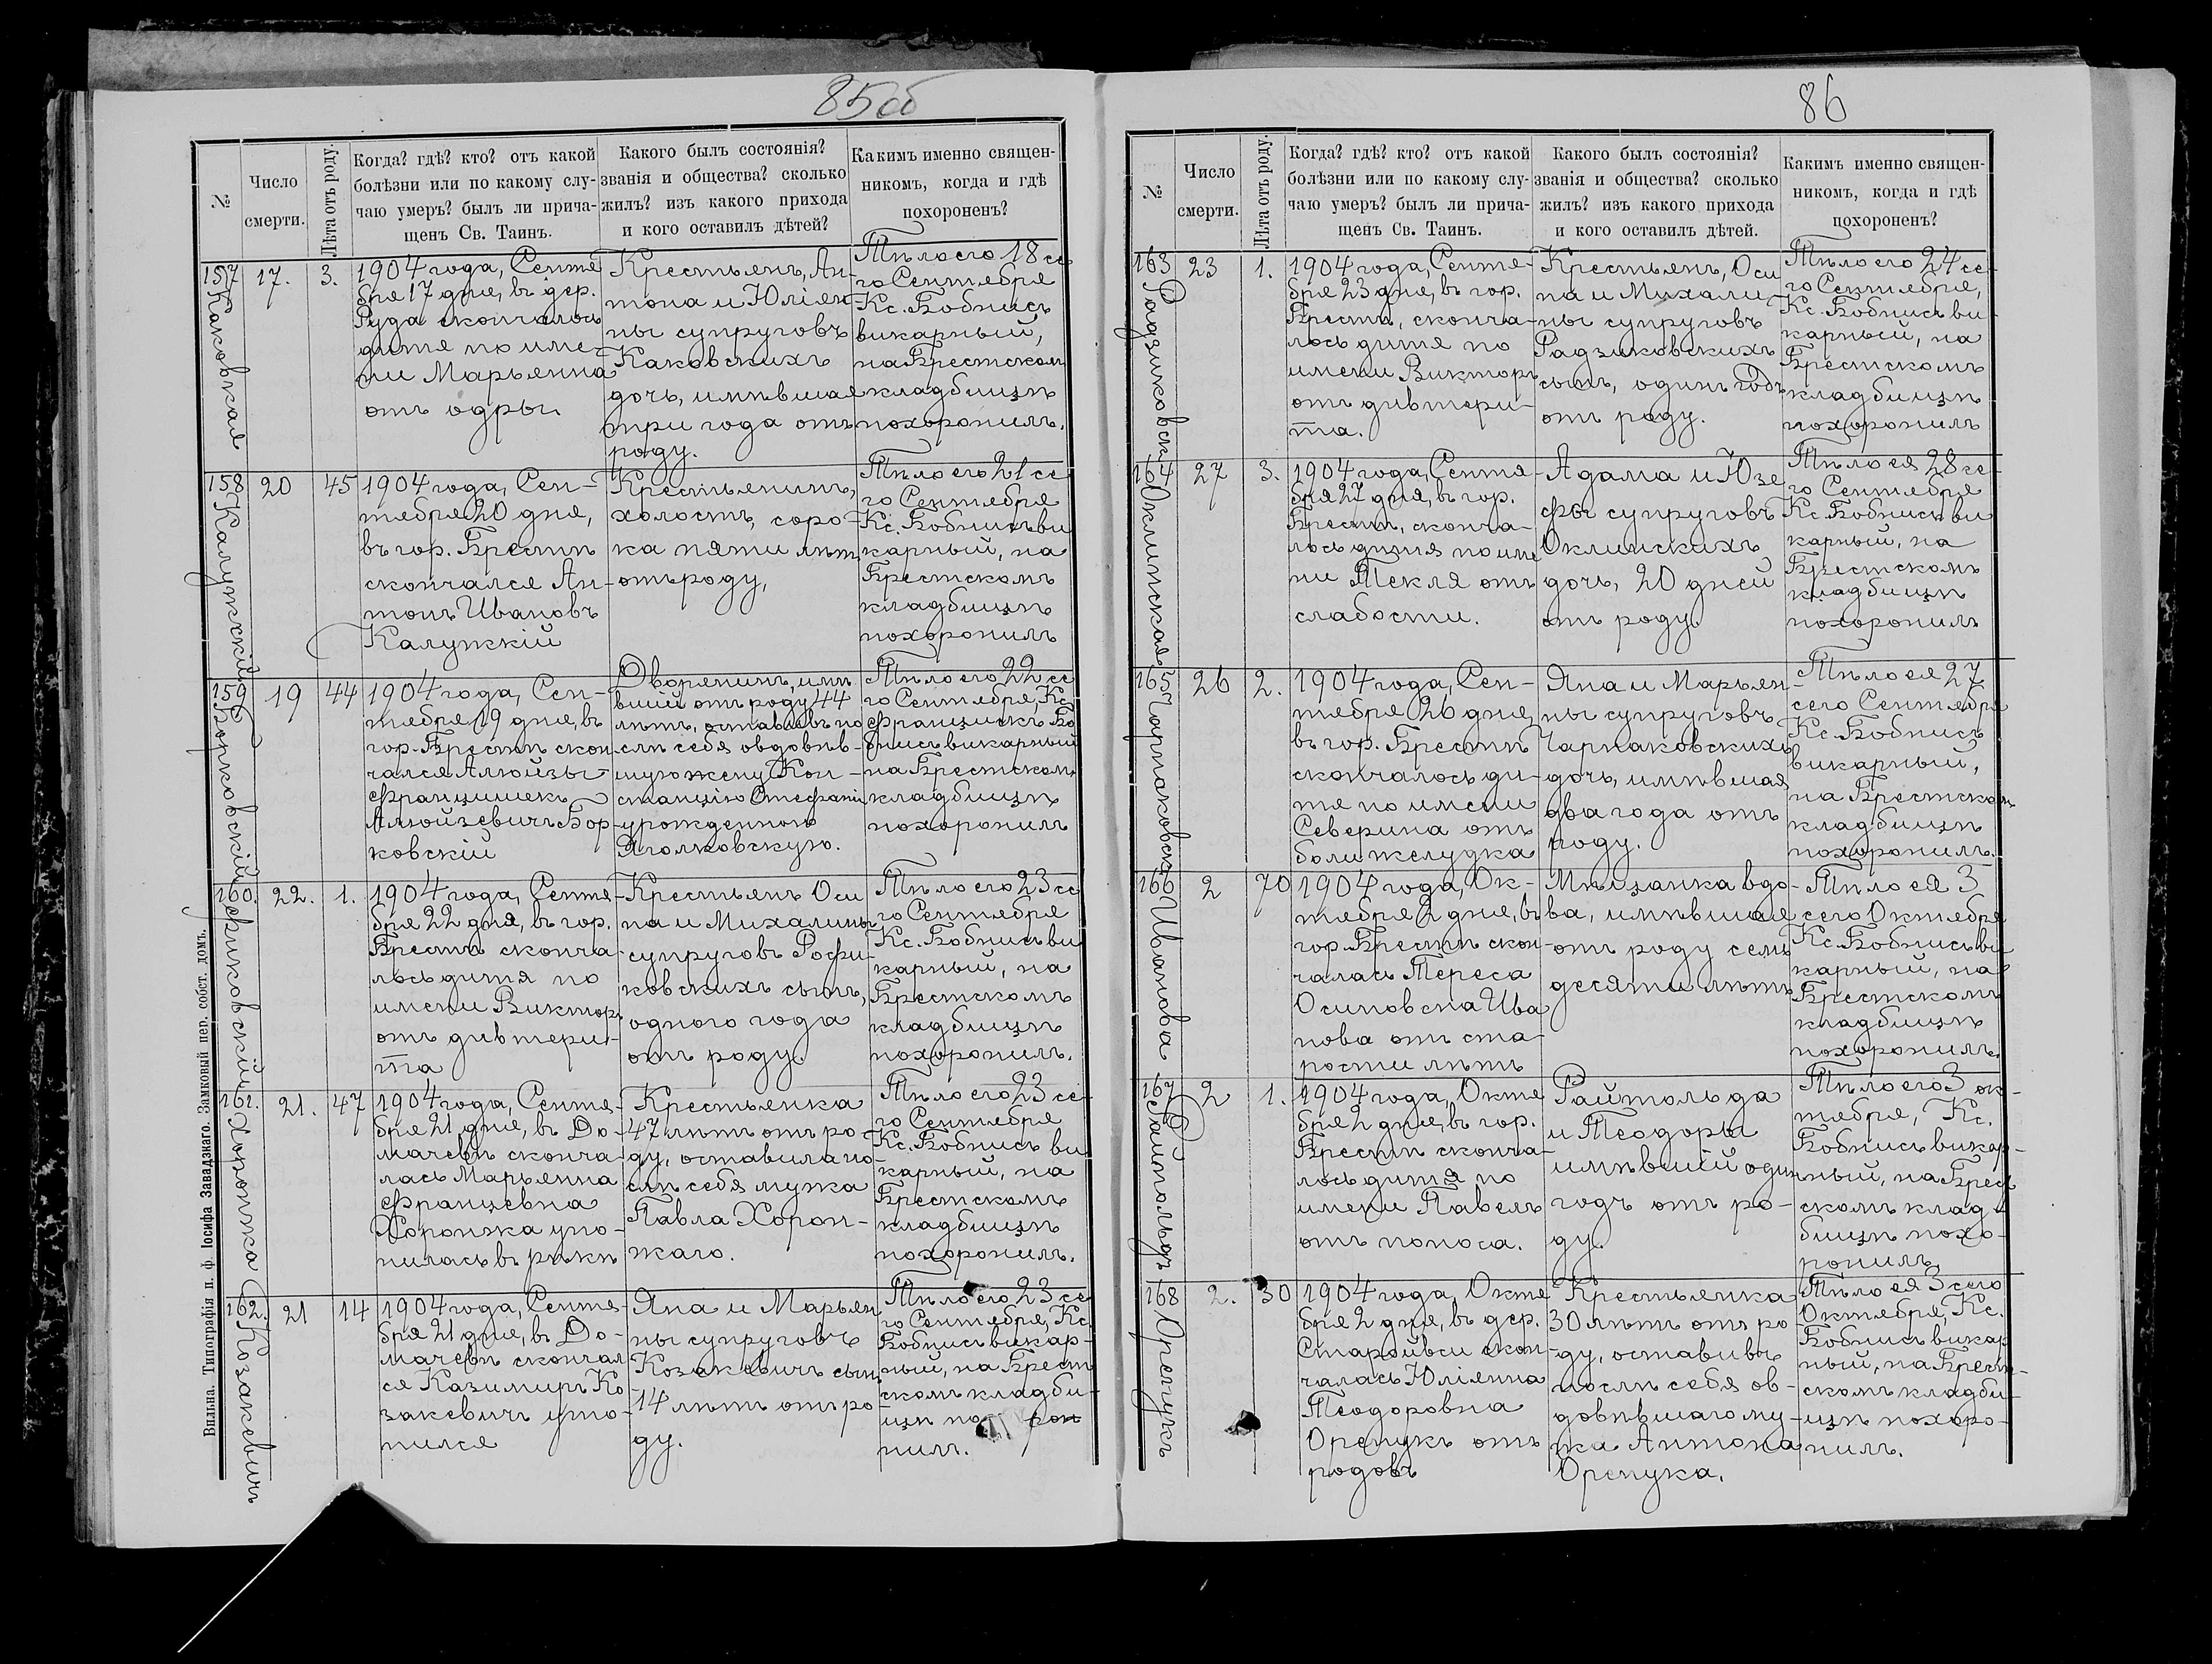 85 об
№
Число
смерти.
Лѣта отъ роду.
Когда? гдѣ? кто? отъ какой
болѣзни или по какому слу-
чаю умеръ? былъ ли прича-
щенъ Св. Таинъ.
Какого былъ состоянія?
званія и общества? сколько
жилъ? изъ какого прихода
и кого оставилъ дѣтей?
Какимъ именно священ-
никомъ, когда и гдѣ
похороненъ?
157
Каковская
17.
3.
1904 года, Сентя
бря 17 дня, въ дер.
Руда скончалось
дитя по име-
ни Марьянна
отъ одры.
Крестьянъ, Ан-
тона и Юліян-
ны супруговъ
Каковскихъ
дочь, имѣвшая
три года отъ
роду.
Тѣло его 18 се
го Сентября
Кс. Бобнисъ
викарный,
на Брестском
кладбищѣ
похоронилъ.
158
Калужскій
20
45
1904 года, Сен-
тября 20 дня,
въ гор. Брестѣ
скончался Ан-
тонъ Ивановъ
Калужскій
Крестьянинъ,
холостъ, соро-
ка пяти лѣтъ
отъ роду,
Тѣло его 21 се
го Сентября
Кс. Бобнисъ ви
карный, на
Брестскомъ
кладбищѣ
похоронилъ
159
Борковскій
19
44
1904 года, Сен-
тября 19 дня, въ
гор. Брестѣ скон
чался Алюйзы-
Францишекъ
Алюйзевичъ Бор-
ковскій
Дворянинъ, имѣ
вшій отъ роду 44
лѣтъ, оставивъ по
слѣ себя овдовѣв-
шую жену Кон-
станцію Стефанію
урожденною
Яголковскую.
Тѣло его 22 се
го Сентября, Кс.
Францишекъ Бо
бнисъ викарный
на Брестском
кладбищѣ
похоронилъ
160.
Фиковскій
22.
1.
1904 года, Сентя-
бря 22 дня, въ гор.
Брестѣ сконча
лось дитя по
имени Викторъ
отъ дивтери-
та
Крестьянъ Оси
па и Михалины
супруговъ Рофи-
ковскихъ сынъ,
одного года
отъ роду.
Тѣло его 23 се
го Сентября
Кс. Бобнисъ ви
карный, на
Брестскомъ
кладбищѣ
похоронилъ.
161.
Хоронжка
21.
47
1904 года, Сентя-
бря 21 дня, въ До-
мачевѣ сконча
лась Марьянна
Францевна
Хоронжка уто-
нилась въ рѣкѣ
Крестьянка
47 лѣтъ отъ ро-
ду, оставила по
слѣ себя мужа
Павла Хорон-
жаго.
Тѣло его 23 се
го Сентября
Кс. Бобнисъ ви
карный, на
Брестскомъ
кладбищѣ
похоронилъ.
162.
Козакевичъ
21
14
1904 года, Сентя-
бря 21 дня, въ До-
мачевѣ скончал
ся Казимиръ Ко
закевичъ уто-
нился
Яна и Марьян
ны супруговъ
Козакевичъ сынъ
14 лѣтъ отъ ро
ду.
Тѣло его 23 се
го Сентября, Кс.
Бобнисъ викар-
ный, на Брест
скомъ кладби-
щѣ по
нилъ.
Вильна. Типографія п. ф. Іосифа Завадзкаго. Замковый пер. собст. домъ.
86
№
Число
смерти.
Лѣта отъ роду.
Когда? гдѣ? кто? отъ какой
болѣзни или по какому слу-
чаю умеръ? былъ ли прича-
щенъ Св. Таинъ.
Какого былъ состоянія?
званія и общества? сколько
жилъ? изъ какого прихода
и кого оставилъ дѣтей.
Какимъ именно священ-
никомъ, когда и гдѣ
похороненъ?
163
Радзиковскъ
23
1.
1904 года, Сентя-
бря 23 дня, въ гор.
Брестѣ, сконча-
лось дитя по
имени Викторъ
отъ дивтери-
та.
Крестьянъ, Оси
па и Михали-
ны супруговъ
Радзиковскихъ
сынъ, одинъ годъ
отъ роду.
Тѣло его 24 се-
го Сентября,
Кс. Бобнисъ ви
карный, на
Брестскомъ
кладбищѣ
похоронилъ
164
Оклинская
27
3.
1904 года, Сентя-
бря 27 дня, въ гор.
Брестѣ, сконча-
лось дитя по име
ни Текля отъ
слабости.
Адама и Юзе
фы супруговъ
Оклинскихъ
дочь, 20 дней
отъ роду.
Тѣло ея 28 се-
го Сентября
Кс. Бобнисъ ви
карный, на
Брестскомъ
кладбищѣ
похоронилъ
165
Чарнаковскъ
26
2.
1904 года, Сен-
тября 26 дня,
въ гор. Брестѣ
скончалось ди-
тя по имени
Северина отъ
боли желудка
Яна и Марьян
ны супруговъ
Чарнаковскихъ
дочь, имѣвшая
два года отъ
роду.
Тѣло ея 27
сего Сентября
Кс. Бобнисъ
викарный,
на Брестском
кладбищѣ
похоронилъ.
166
Иванова
2
70
1904 года, Ок-
тября 2 дня, въ
гор. Брестѣ скон-
чалась Тереса
Осиповна Ива
нова отъ ста-
рости лѣтъ
Мѣщанка вдо-
ва, имѣвшая
отъ роду семь
десяти лѣтъ
Тѣло ея 3
сего Октября
Кс. Бобнисъ ви
карный, на
Брестскомъ
кладбищѣ
похоронилъ.
167
Раймольдъ
2
1.
1904 года, Октя
бря 2 дня, въ гор.
Брестѣ сконча-
лось дитя по
имени Павелъ
отъ поноса.
Раймольда
и Теодоры
имѣвшій одинъ
годъ отъ ро-
ду.
Тѣло его 3 ок-
тября, Кс.
Бобнисъ викар-
ный, на Брест
скомъ клад-
бищѣ похо-
ронилъ.
168
Оренукъ
2.
30
1904 года, Октя
бря 2 дня, въ дер.
Старойвси скон-
чалась Юліянна
Теодоровна
Оренукъ отъ
родовъ
Крестьянка
30 лѣтъ отъ ро
ду, оставивъ
послѣ себя ов-
довѣвшаго му-
жа Антона
Оренука.
Тѣло ея 3 сего
Октября, Кс.
Бобнисъ викар
ный, на Брест-
скомъ кладби-
щѣ похоро-
нилъ.